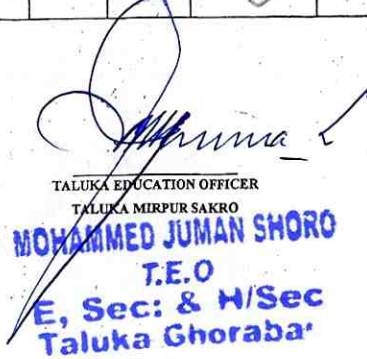 TALUKA EDUCATION OFFICER
TALUKA MIRPUR SAKRO
MOHAMMED JUMAN SHORO
T.E.O
E, Sec: & H/Sec
Taluka Ghorabar